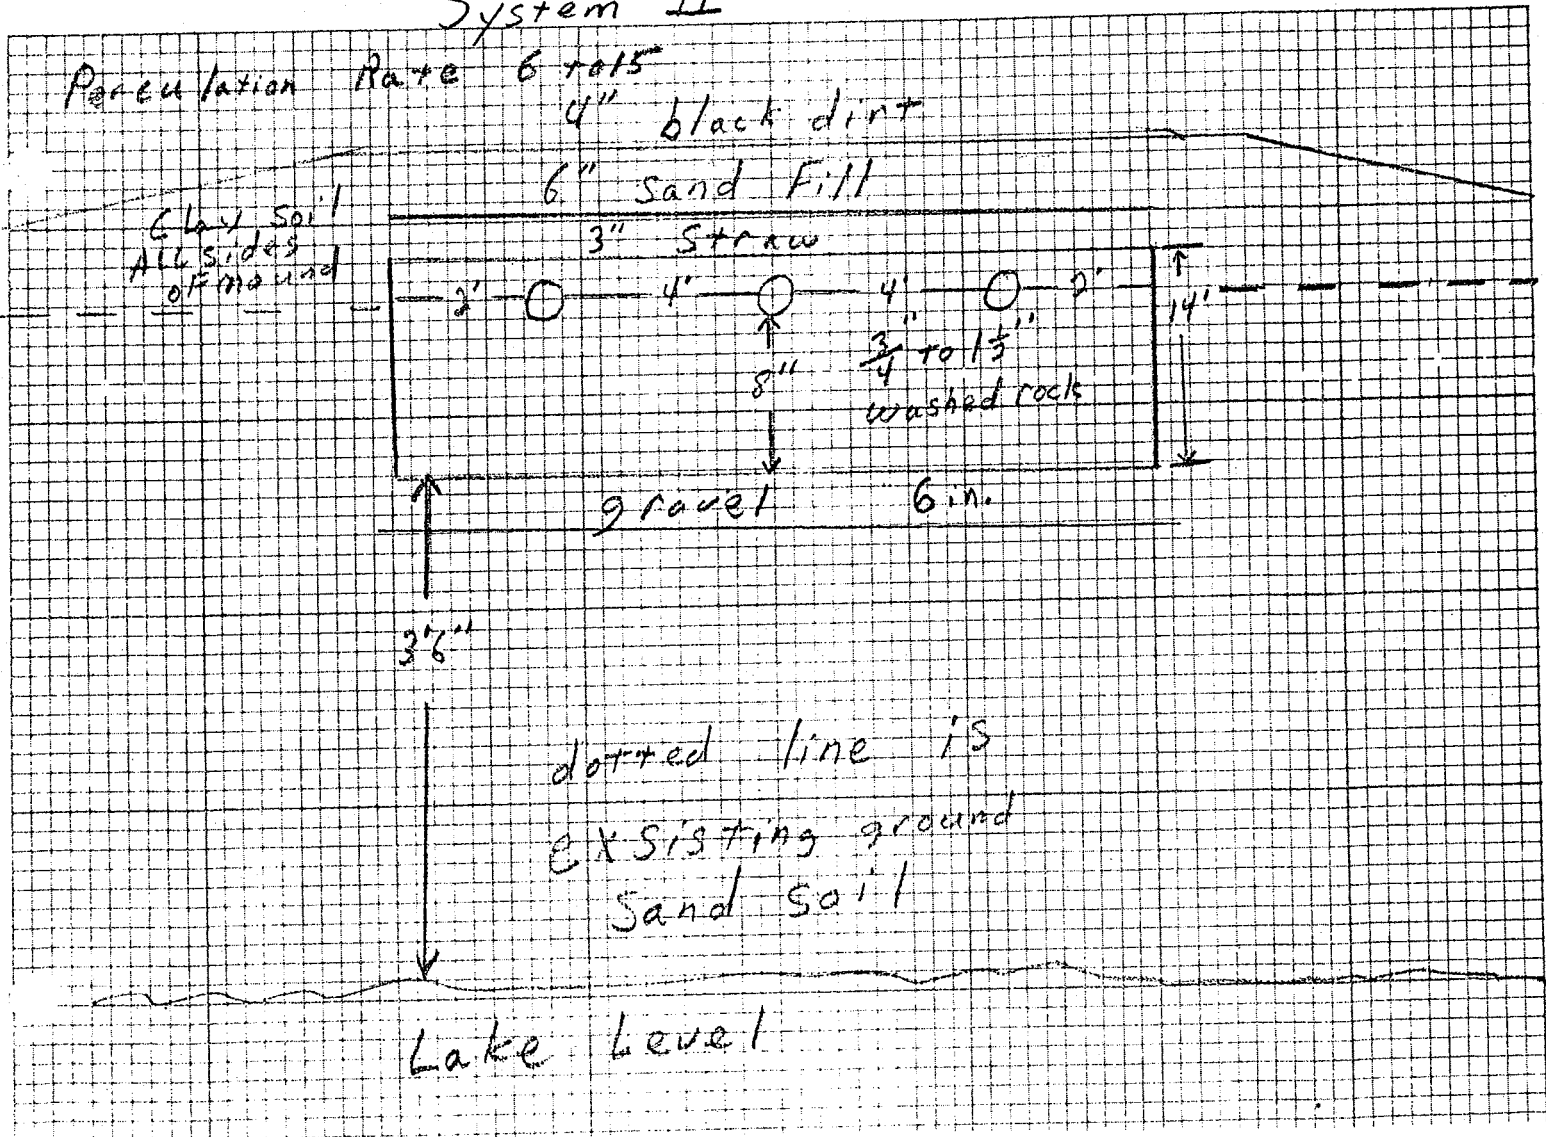 System II
Perculation Rate 6 to 15
4" black dirt
6" Sand Fill
Clay Soil
ALL sides
of mound
3" Straw
2' 4' 4' 2'
14'
8"
3/4" to 1 1/3"
washed rock
gravel 6 in.
3'6"
dotted line is
exsisting ground
Sand Soil
Lake Level